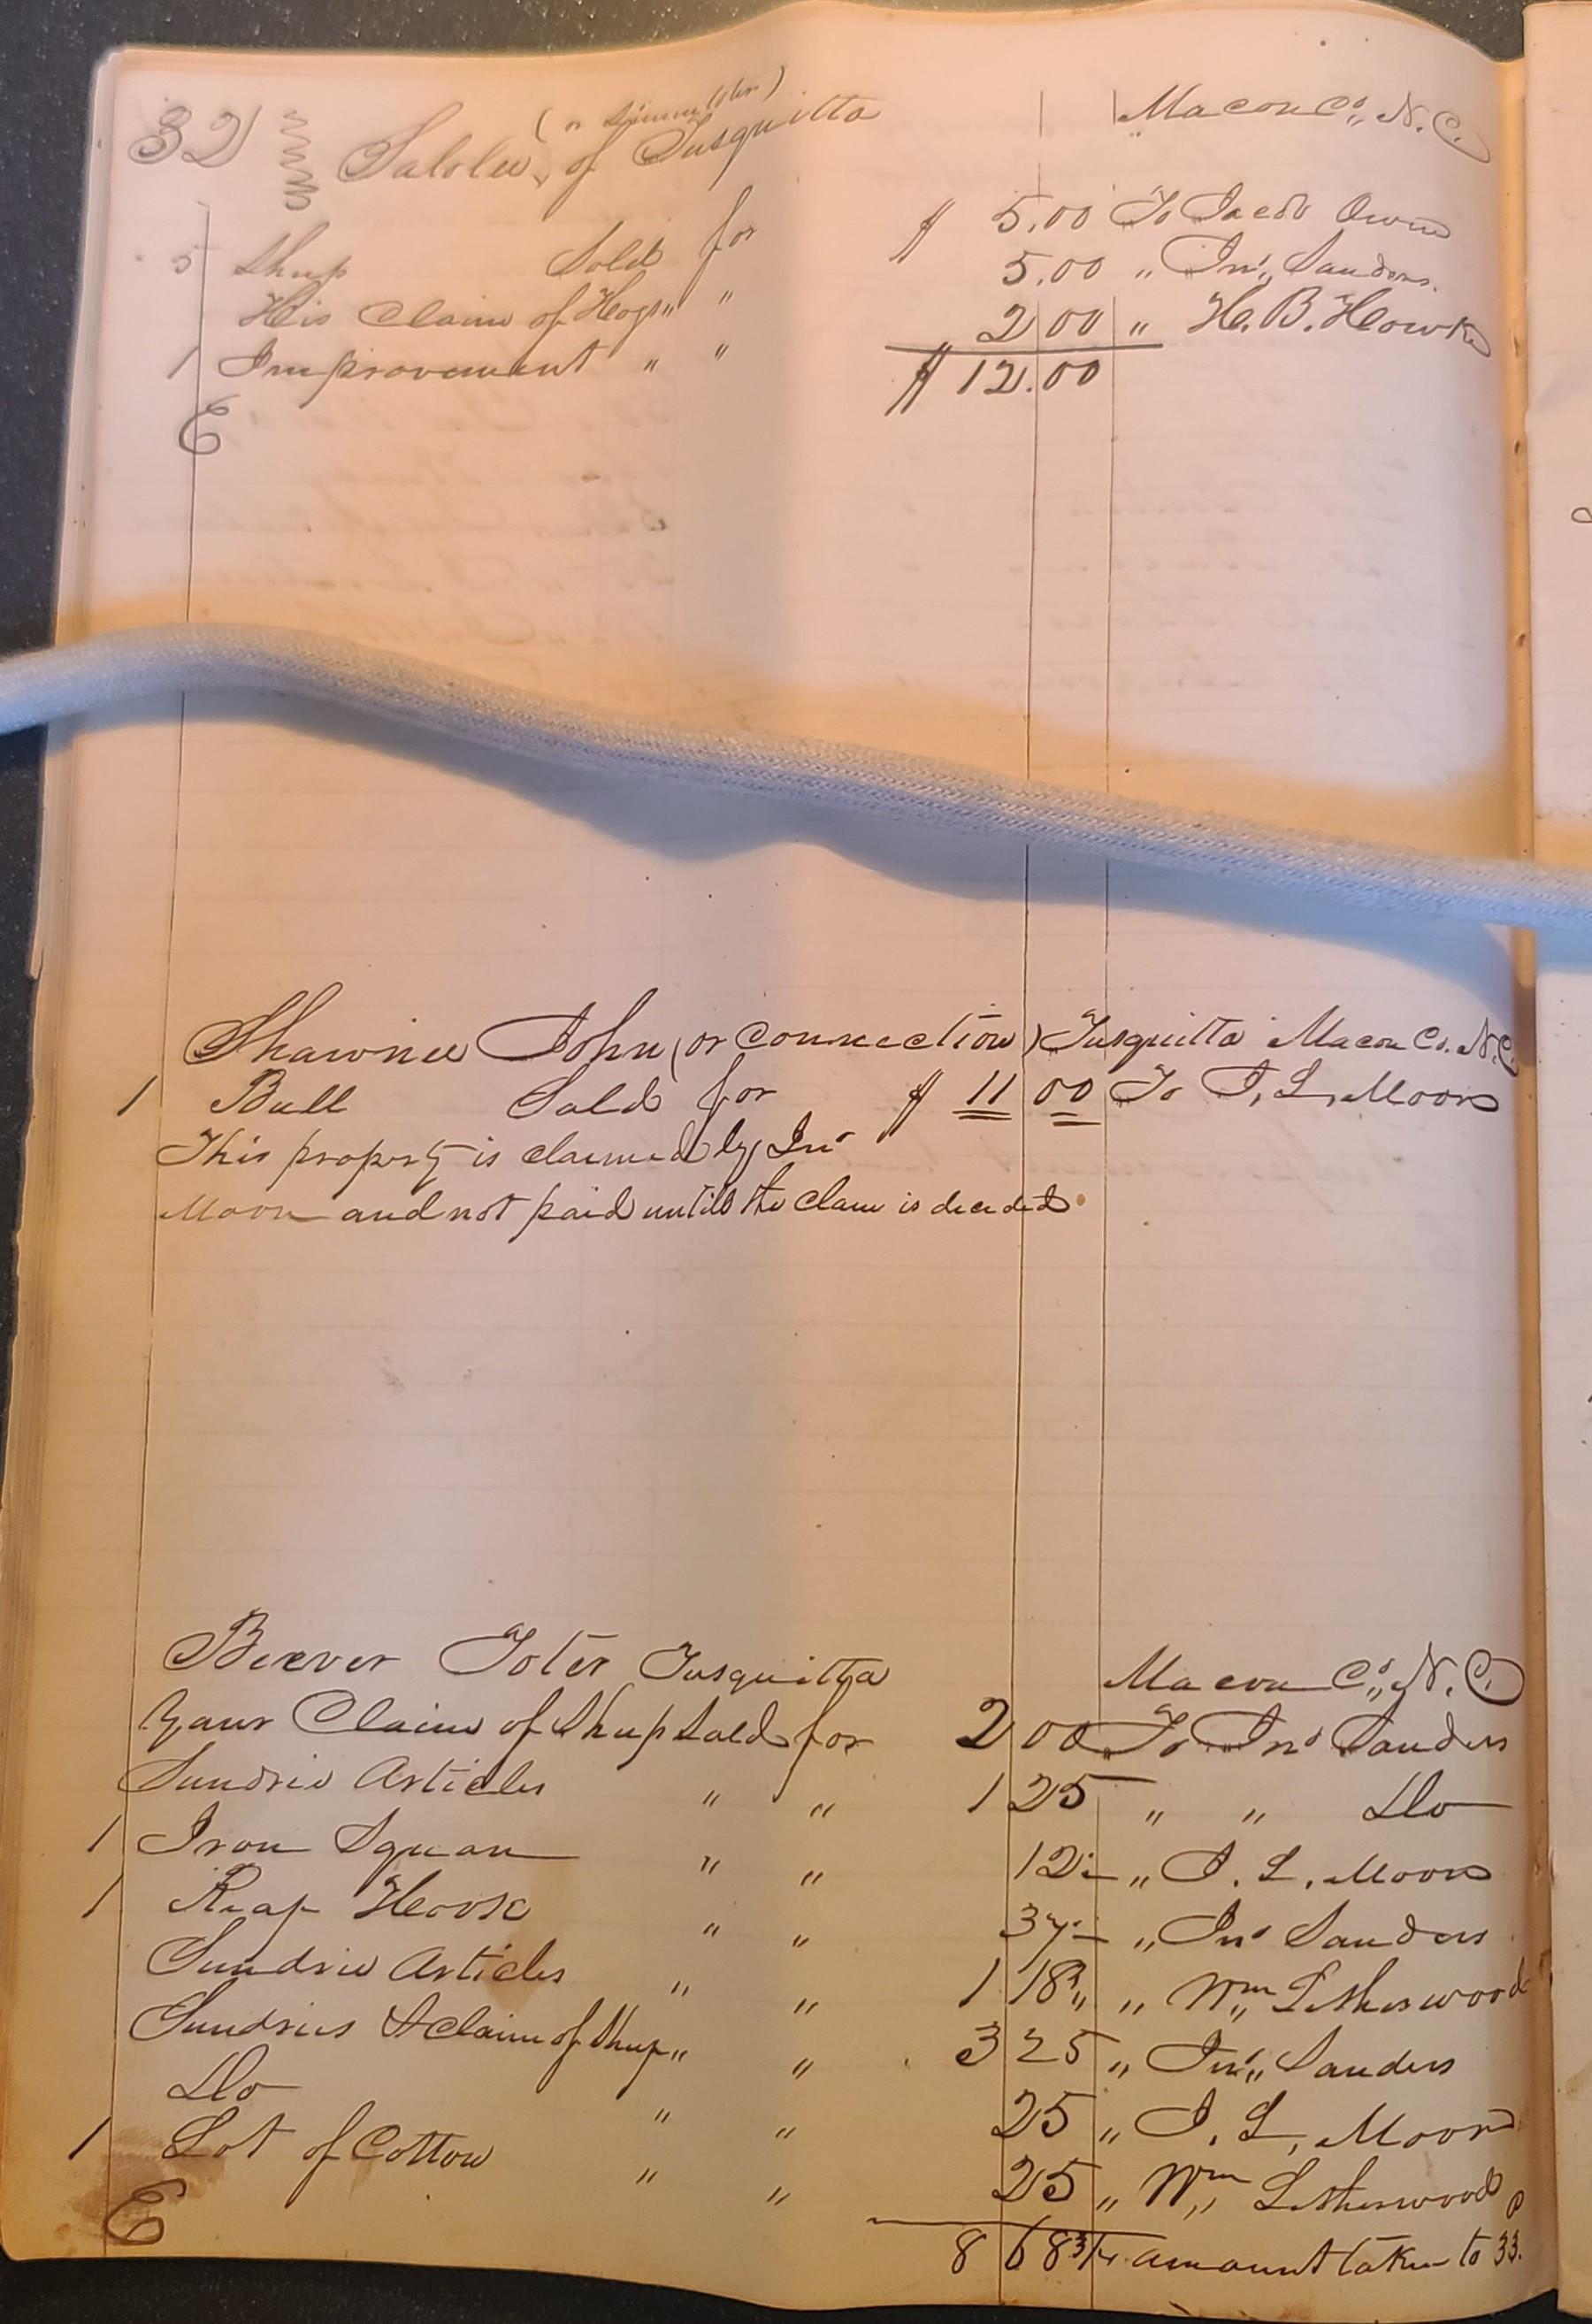 32 Salolee, of Tusquitta Macon Co., N.C.
5 Sheep Sold for $ 5.00 To Jacob Owen
His Claim of Hogs " " 5.00 " Jno. Sanders.
1 Improvement " " 2 00 " H. B. Hawk
$ 12.00
E
Shawnee John (or Connection) Tusquitta Macon Co. N.C.
1 Bull Sold for $ 11 00 To J. L. Moore
This property is claimed by Jno
Moore and not paid untill the claim is decided
Beaver Toter Tusquitta Macon Co., N.C.
Claim of Sheep Sold for 2 00 To Jno Sanders
Sundrie Articles " " 1 25 " " Do
1 Iron Square " " 12½ " J. L. Moore
1 Reap Hook " " 37½ " Jno Sanders
Sundrie Articles " " 1 18¾ " Wm Letherwood
Sundries & Claim of Sheep " " 3 25 " Jno. Sanders
Do " " 25 " J. L. Moore
1 Lot of Cotton " " 25 " Wm Letherwood
E
8 68¾ amount taken to P 33.